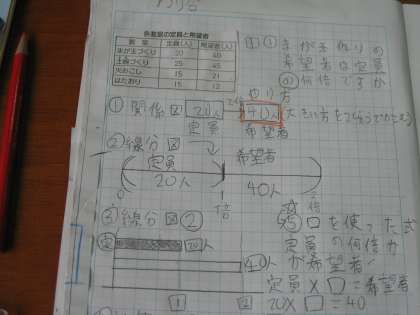 わり合
各教室の定員と希望者
教室 定員(人) 希望者(人)
まが玉づくり 20 40
土器づくり 25 45
火おこし 15 21
はたおり 15 12
①① まが玉作りの
希望者は定員
の何倍ですか
やり方
① 関係図 20人 40人
定員 希望者
② 線分図
定員 希望者
20人 40人
0 1
倍
③ 線分図②
⑤ □を使った式
定員の何倍か
が希望者
定員×□=希望者
20×□=40
定 20人
40人
1 2